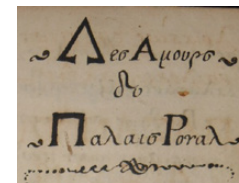 Δες Αμουρς
δȣ
Παλαις Ροyαλ